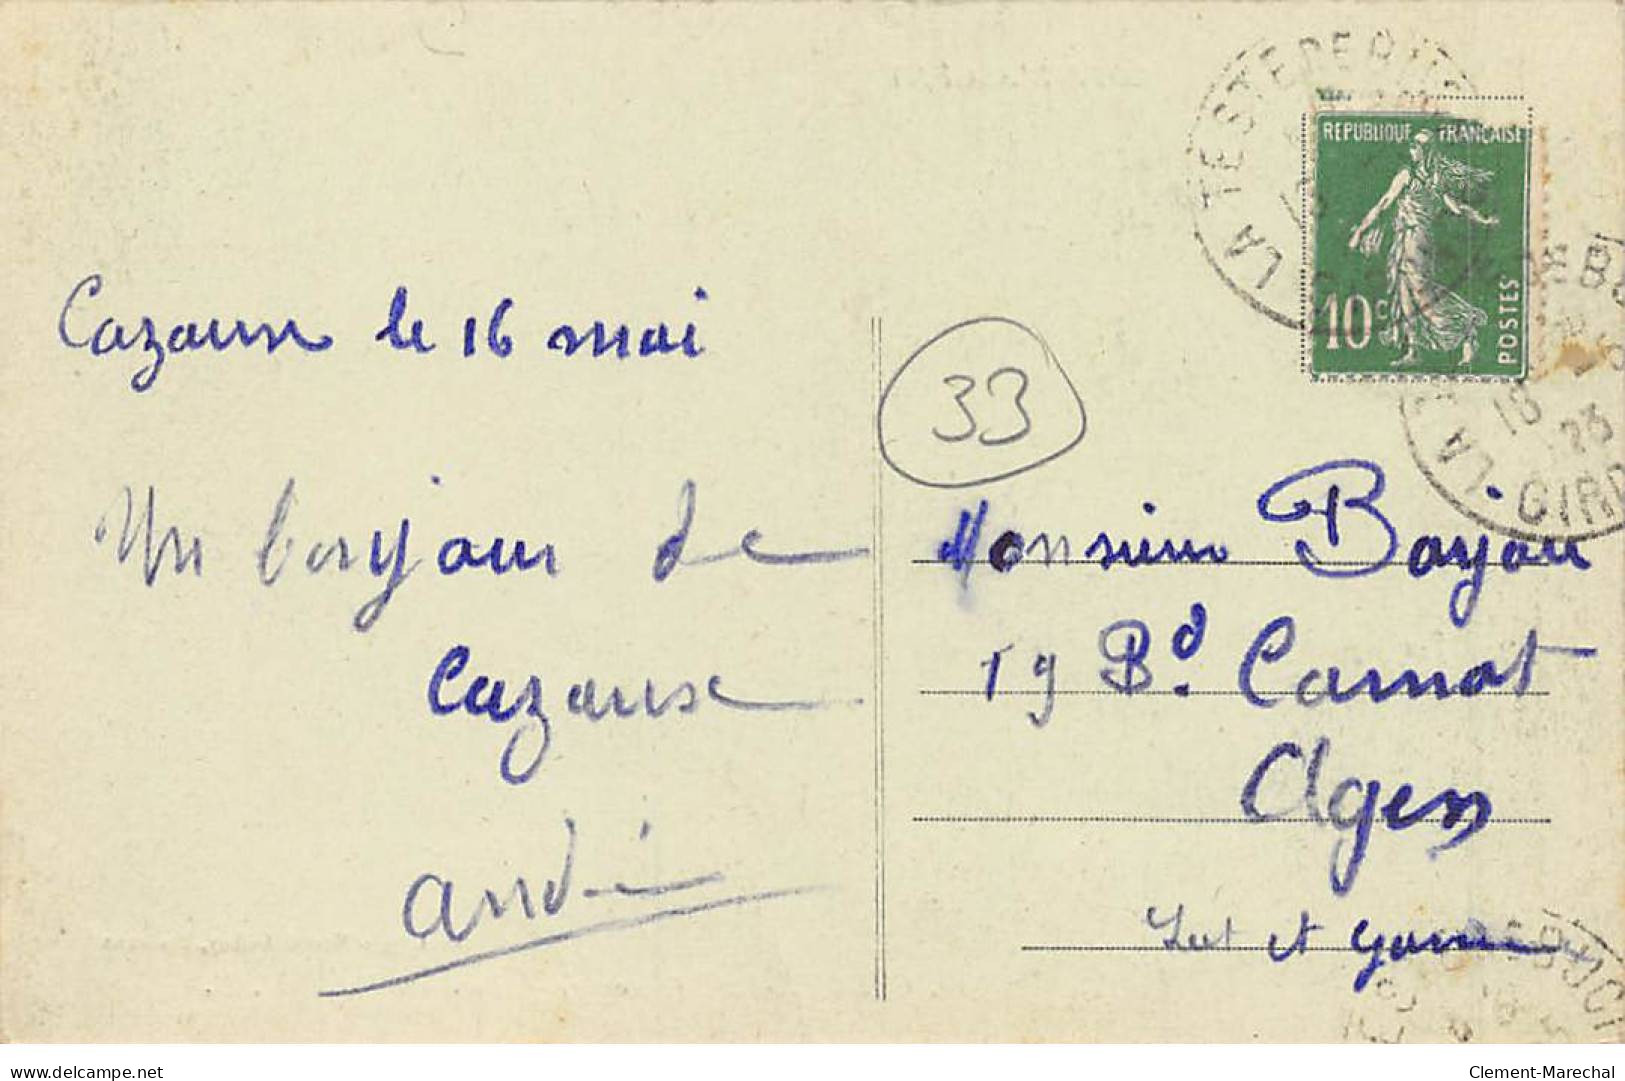 LA TESTE DE BUCH
REPUBLIQUE FRANÇAISE
10c
POSTES
LA
18
23
GIRO
33
Cazaux le 16 mai
Un bonjour de
Cazaux
André
Monsieur Boyjou
19 Bd. Carnot
Agen
Lot et Garonne
delcampe.net
Clement-Marechal